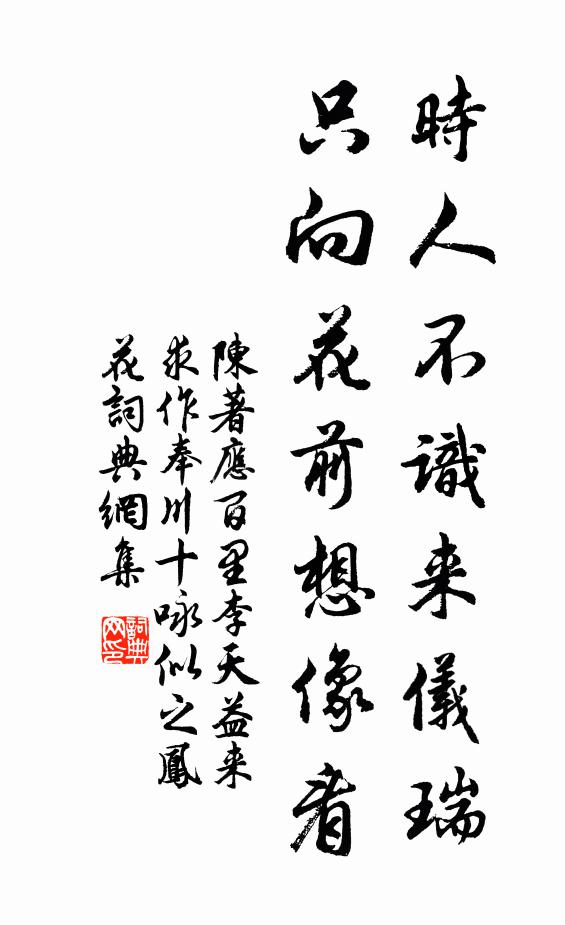 時人不識来儀瑞
只向花前想像看
陳著應百里李天益来
求作奉川十咏似之鳳
花詞典網集
詞典网印